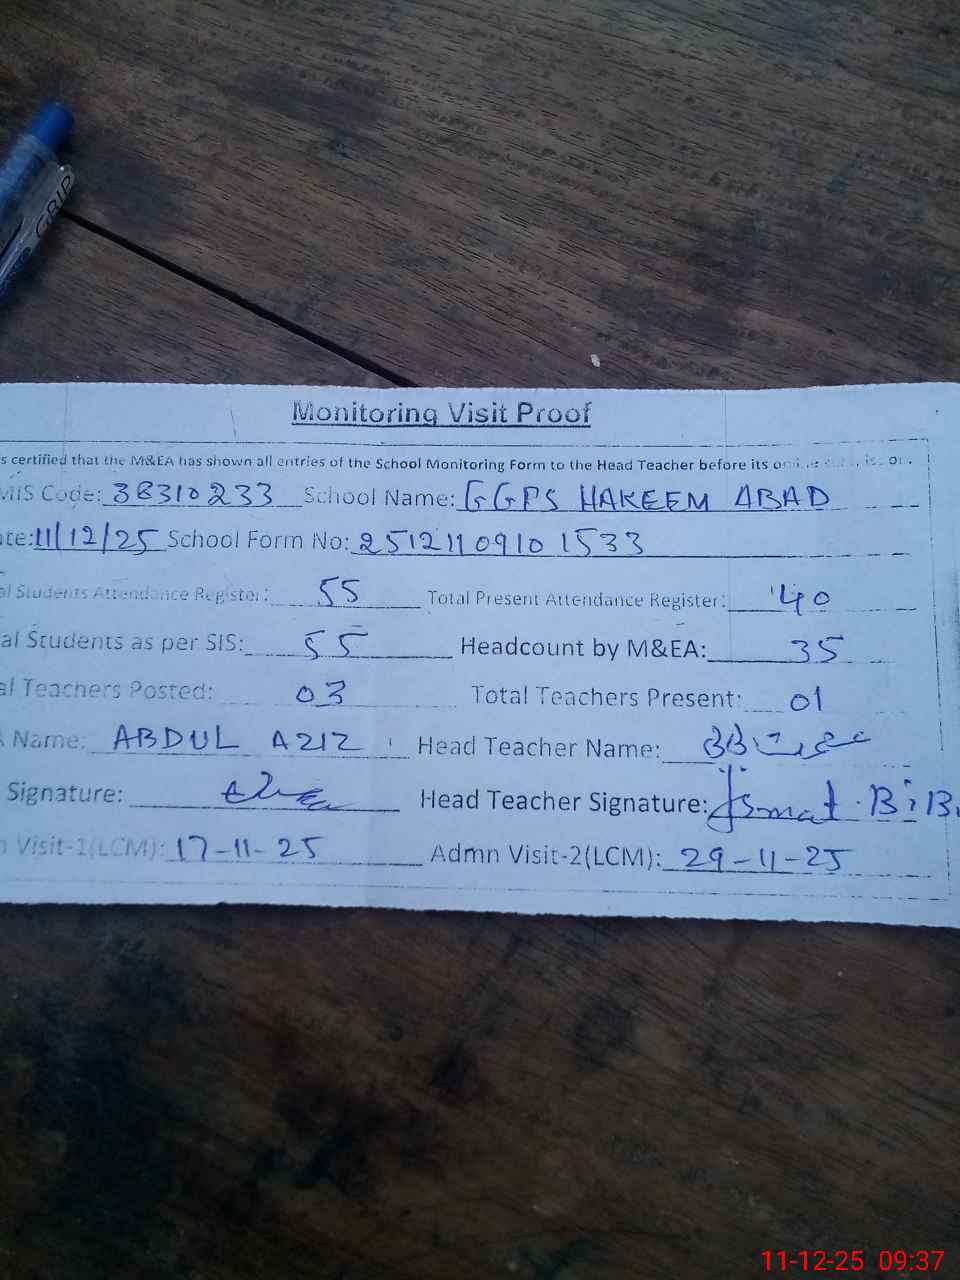 GRIP
Monitoring Visit Proof
s certified that the M&EA has shown all entries of the School Monitoring Form to the Head Teacher before its
MIS Code: 38310233 School Name: GGPS HAKEEM ABAD
te: 11/12/25 School Form No: 2512110910 1533
al Students Attendance Register: 55 Total Present Attendance Register: 40
al Students as per SIS: 55 Headcount by M&EA: 35
al Teachers Posted: 03 Total Teachers Present: 01
Name: ABDUL AZIZ Head Teacher Name:
Signature: Head Teacher Signature: Ismat Bibi
Visit-1(LCM): 17-11-25 Admn Visit-2(LCM): 29-11-25
11-12-25 09:37